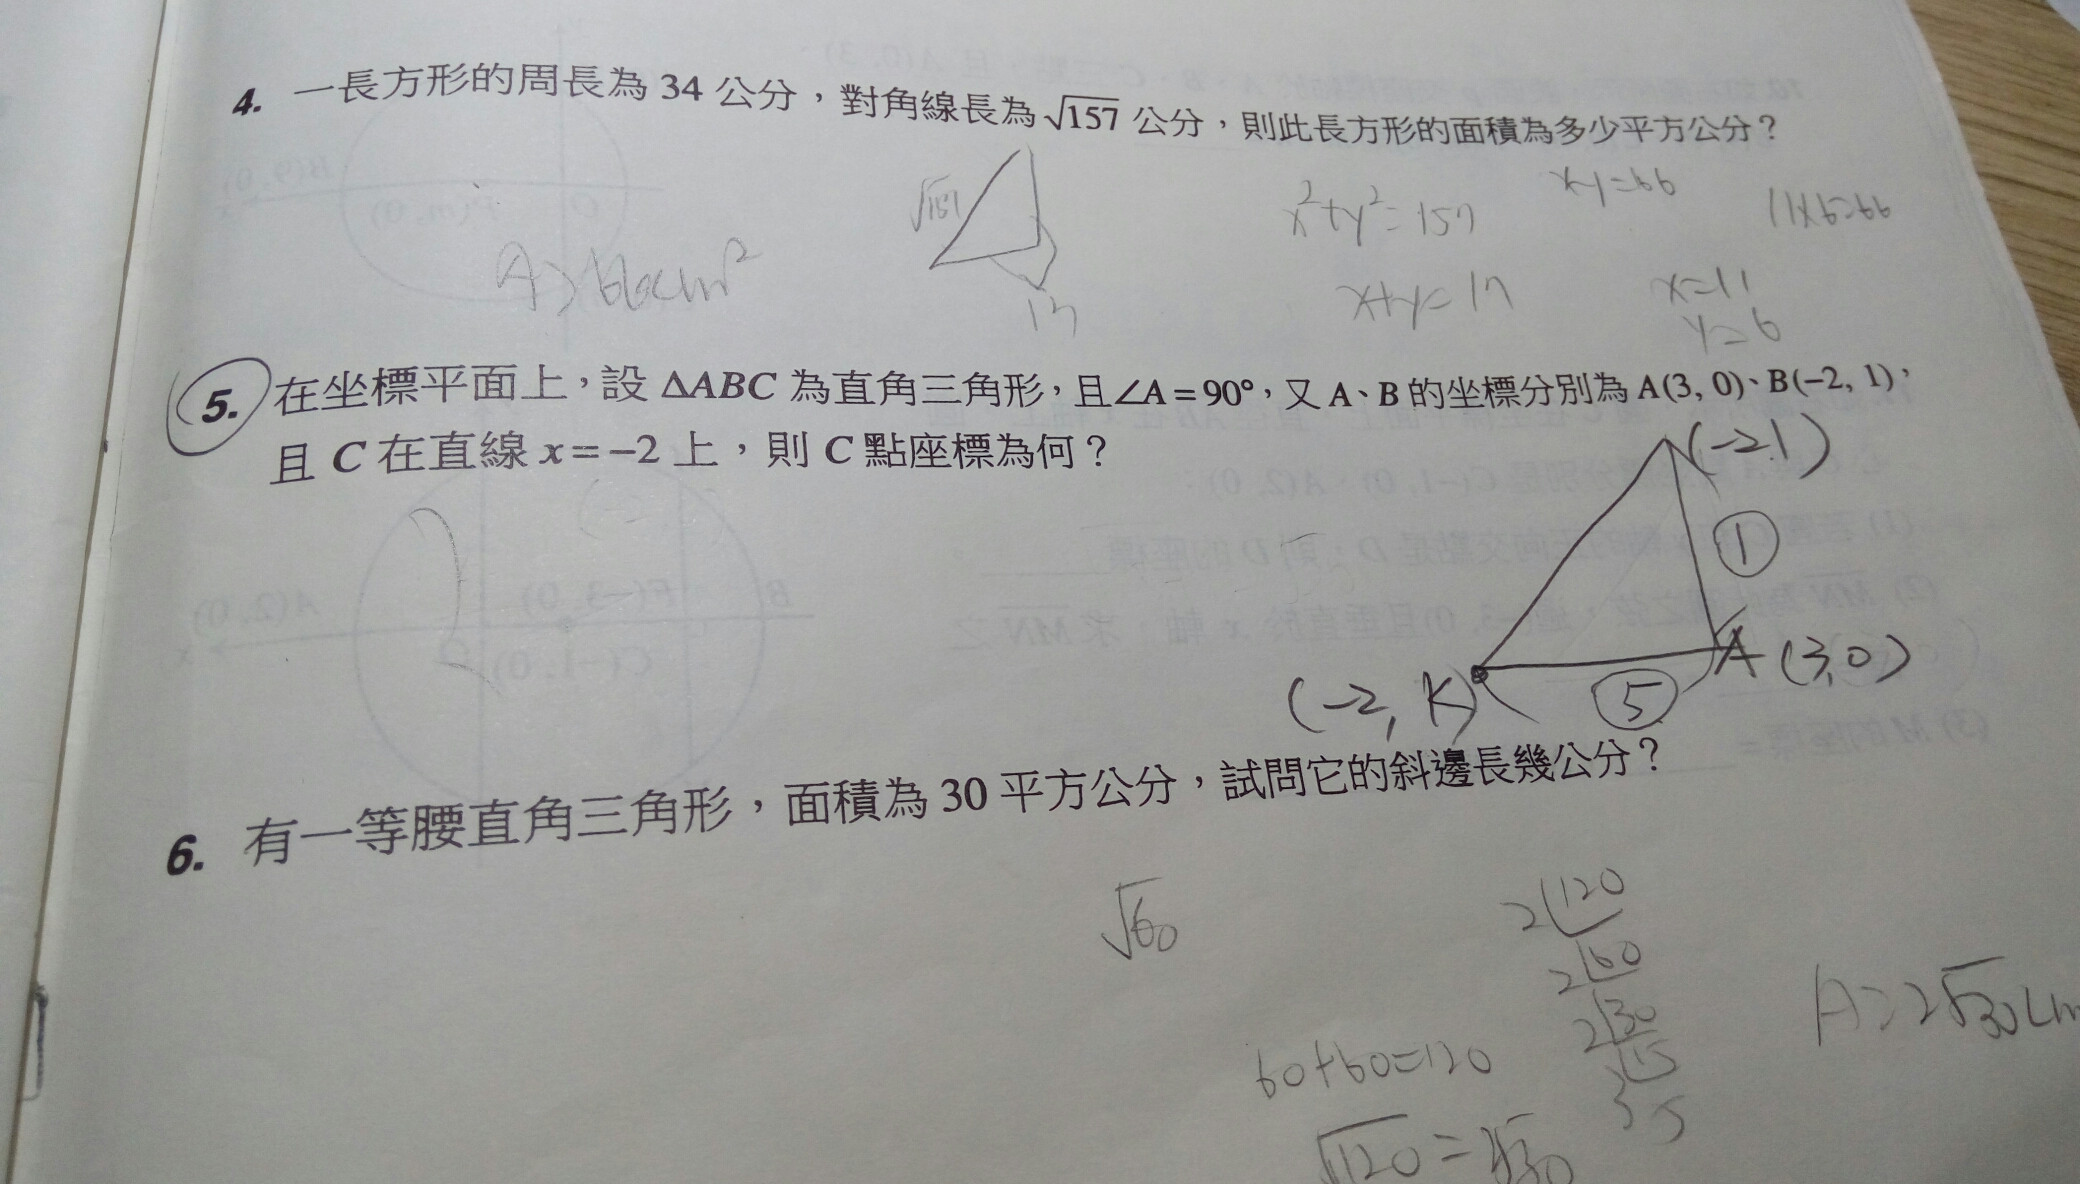 4. 一長方形的周長為 34 公分，對角線長為 √157 公分，則此長方形的面積為多少平方公分？
x²+y²=157
11×6=66
A>66cm²
x+y=17
x=11
y=6
5. 在坐標平面上，設 ΔABC 為直角三角形，且∠A=90°，又 A、B 的坐標分別為 A(3, 0)、B(−2, 1)，
且 C 在直線 x=−2 上，則 C 點座標為何？
(−2,1)
①
A (3,0)
(−2, K)
⑤
6. 有一等腰直角三角形，面積為 30 平方公分，試問它的斜邊長幾公分？
√60
2 120
2 60
2 30
3 15
5
60+60=120
A>2√30cm
√120=2√30